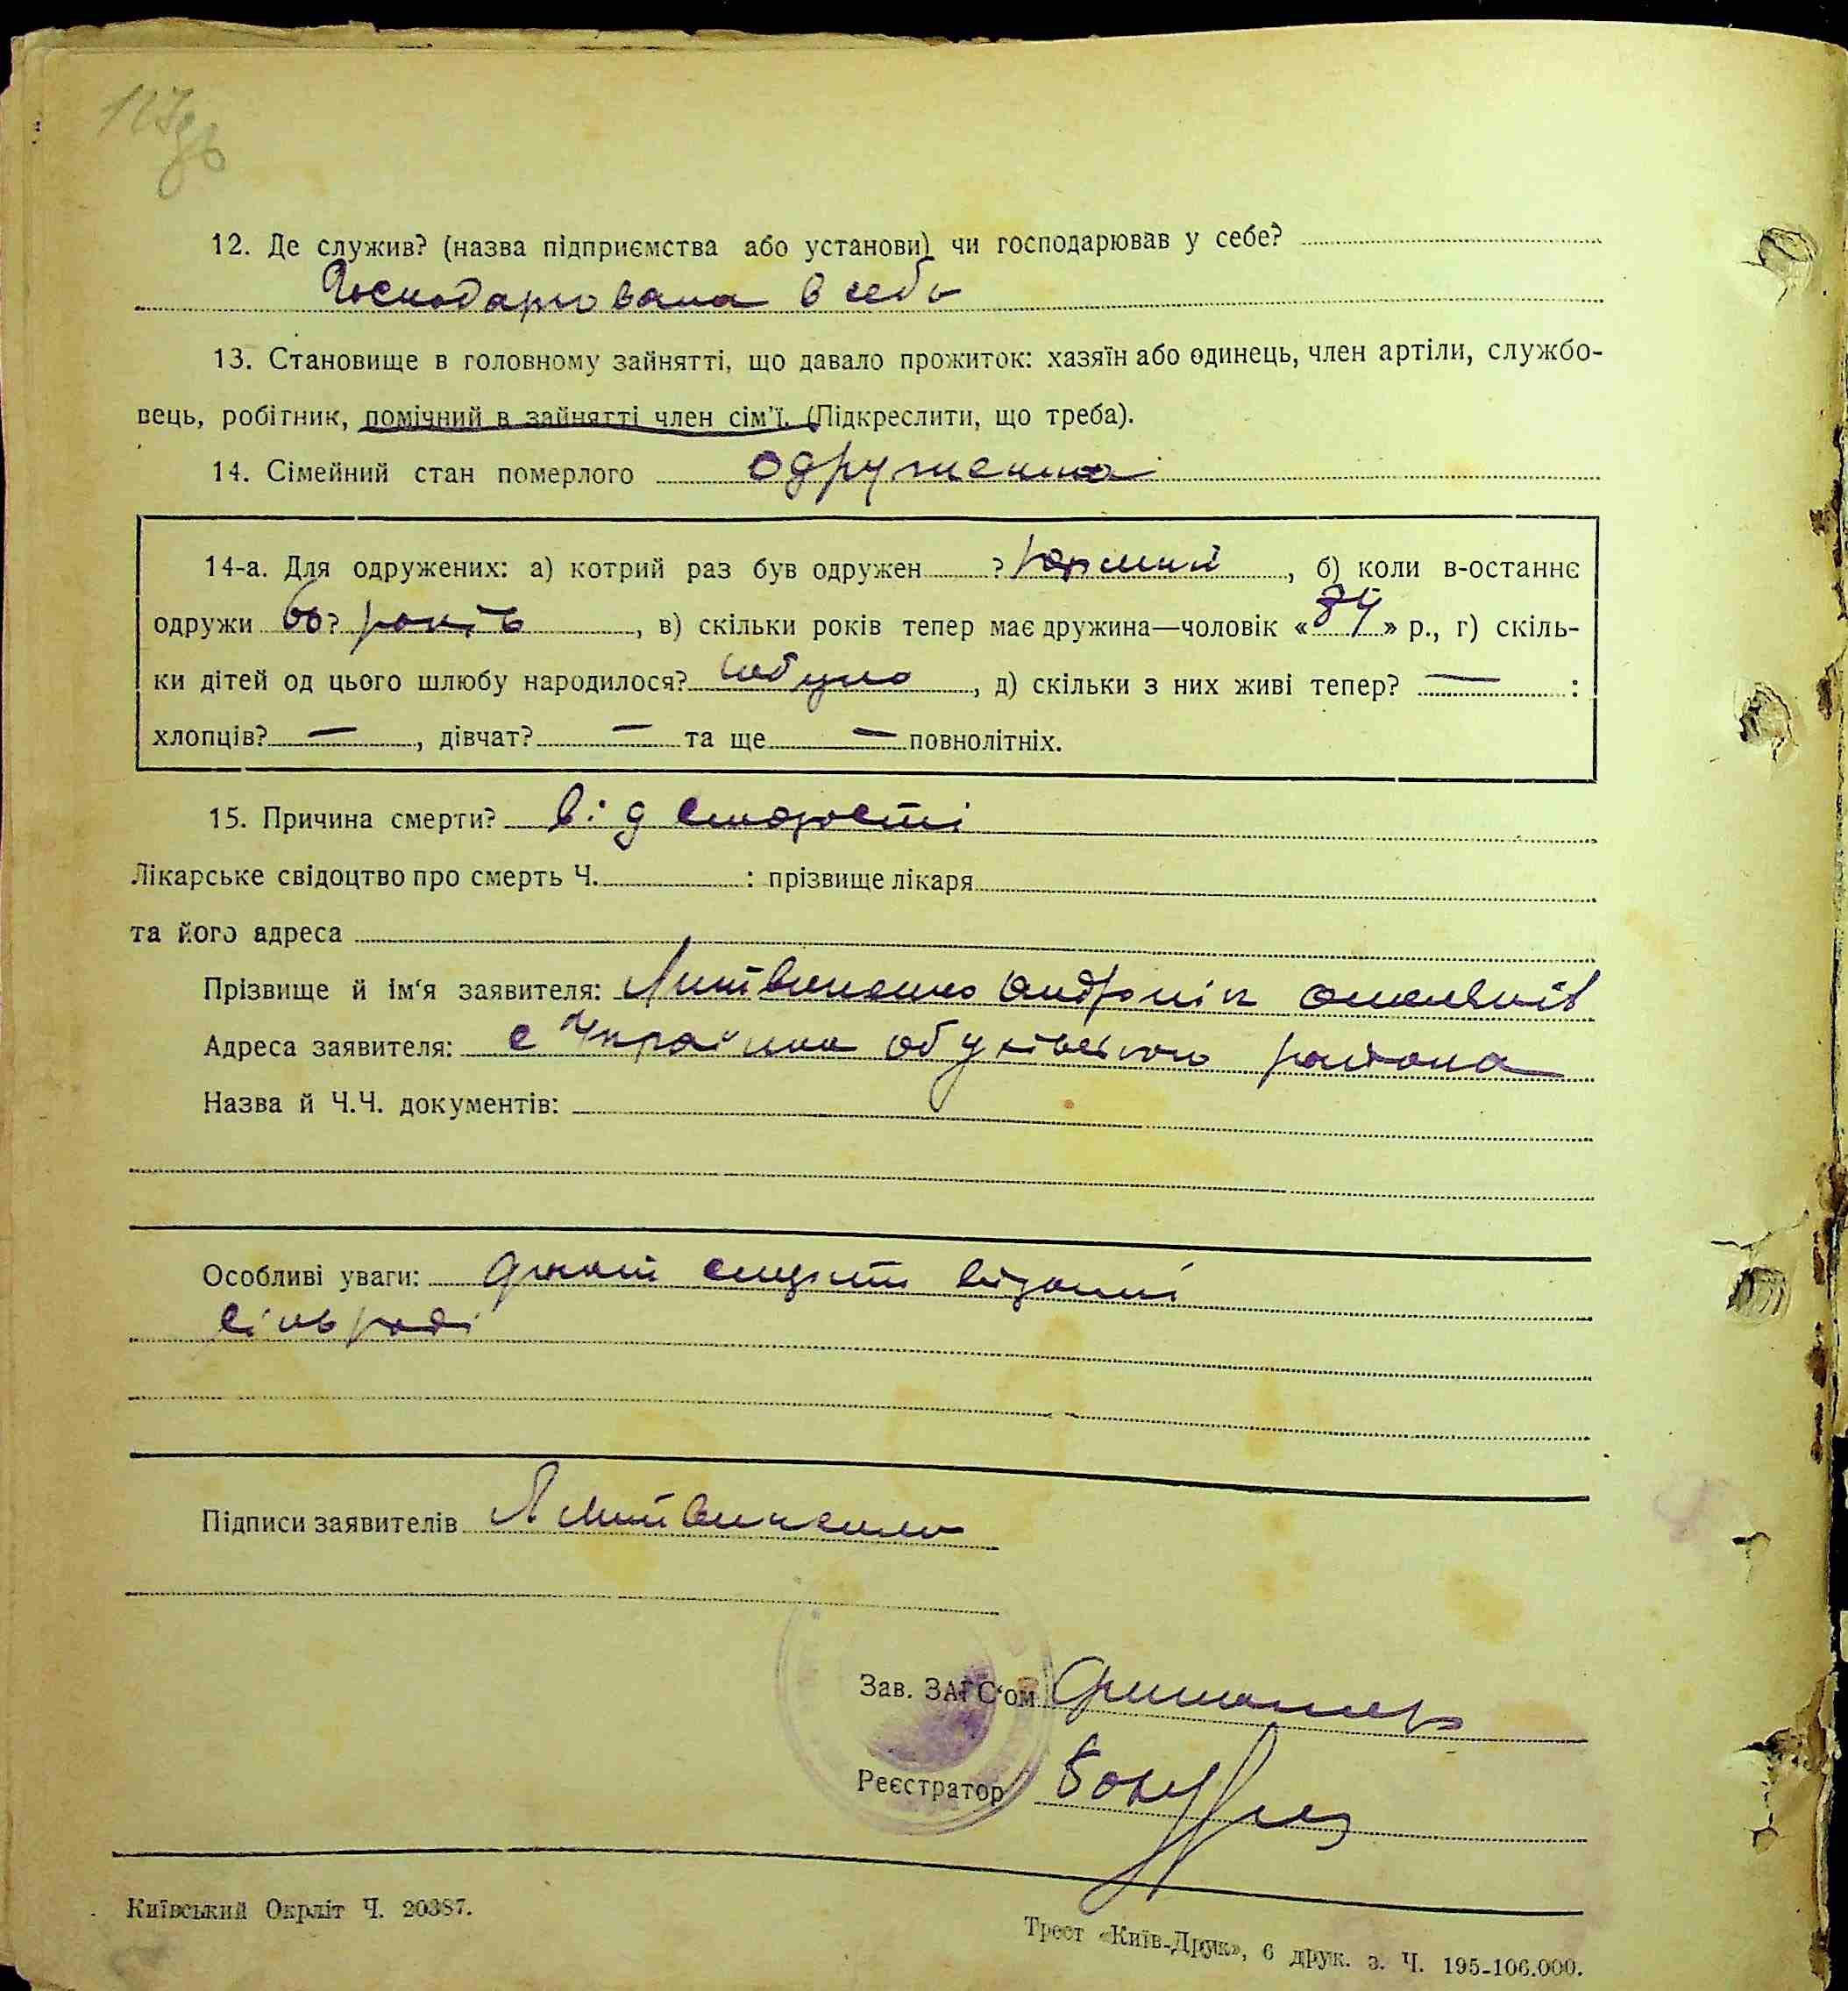 12. Де служив? (назва підприємства або установи) чи господарював у себе?
Господарювала в себе
13. Становище в головному зайнятті, що давало прожиток: хазяїн або одинець, член артіли, службо-
вець, робітник, помічний в зайнятті член сім'ї. (Підкреслити, що треба).
14. Сімейний стан померлого одруженна
14-а. Для одружених: а) котрий раз був одружен ? перший, б) коли в-останнє
одружи ? років, в) скільки років тепер має дружина—чоловік « 84 » р., г) скіль-
ки дітей од цього шлюбу народилося? небуло, д) скільки з них живі тепер? — :
хлопців? — , дівчат? — та ще — повнолітніх.
15. Причина смерти? від старості
Лікарське свідоцтво про смерть Ч. : прізвище лікаря
та його адреса
Прізвище й ім'я заявителя: Литвиненко Андронік
Адреса заявителя: с Українка обухівського района
Назва й Ч.Ч. документів:
Особливі уваги: смерти
сільраді
Підписи заявителів Литвиненко
Зав. ЗАГС'ом
Реєстратор
Київський Окрліт Ч. 20387.
Трест «Київ-Друк», 6 друк. з. Ч. 195-106.000.